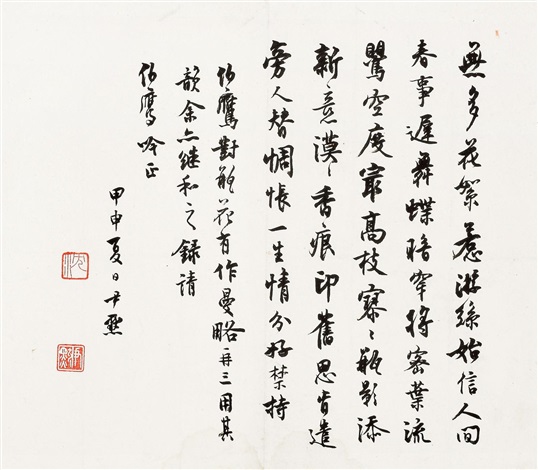 無多花絮惹游絲始信人間
春事遲舞蝶暗穿將密葉流
鶯空度冣高枝寥〻瓶影添
新意漠〻香痕印舊思肯遣
旁人替惆悵一生情分好禁持
伯鷹對瓶花有作曼略再三用其
韻余亦繼和之錄請
伯鷹吟正
甲申夏日尹默
沈
尹默